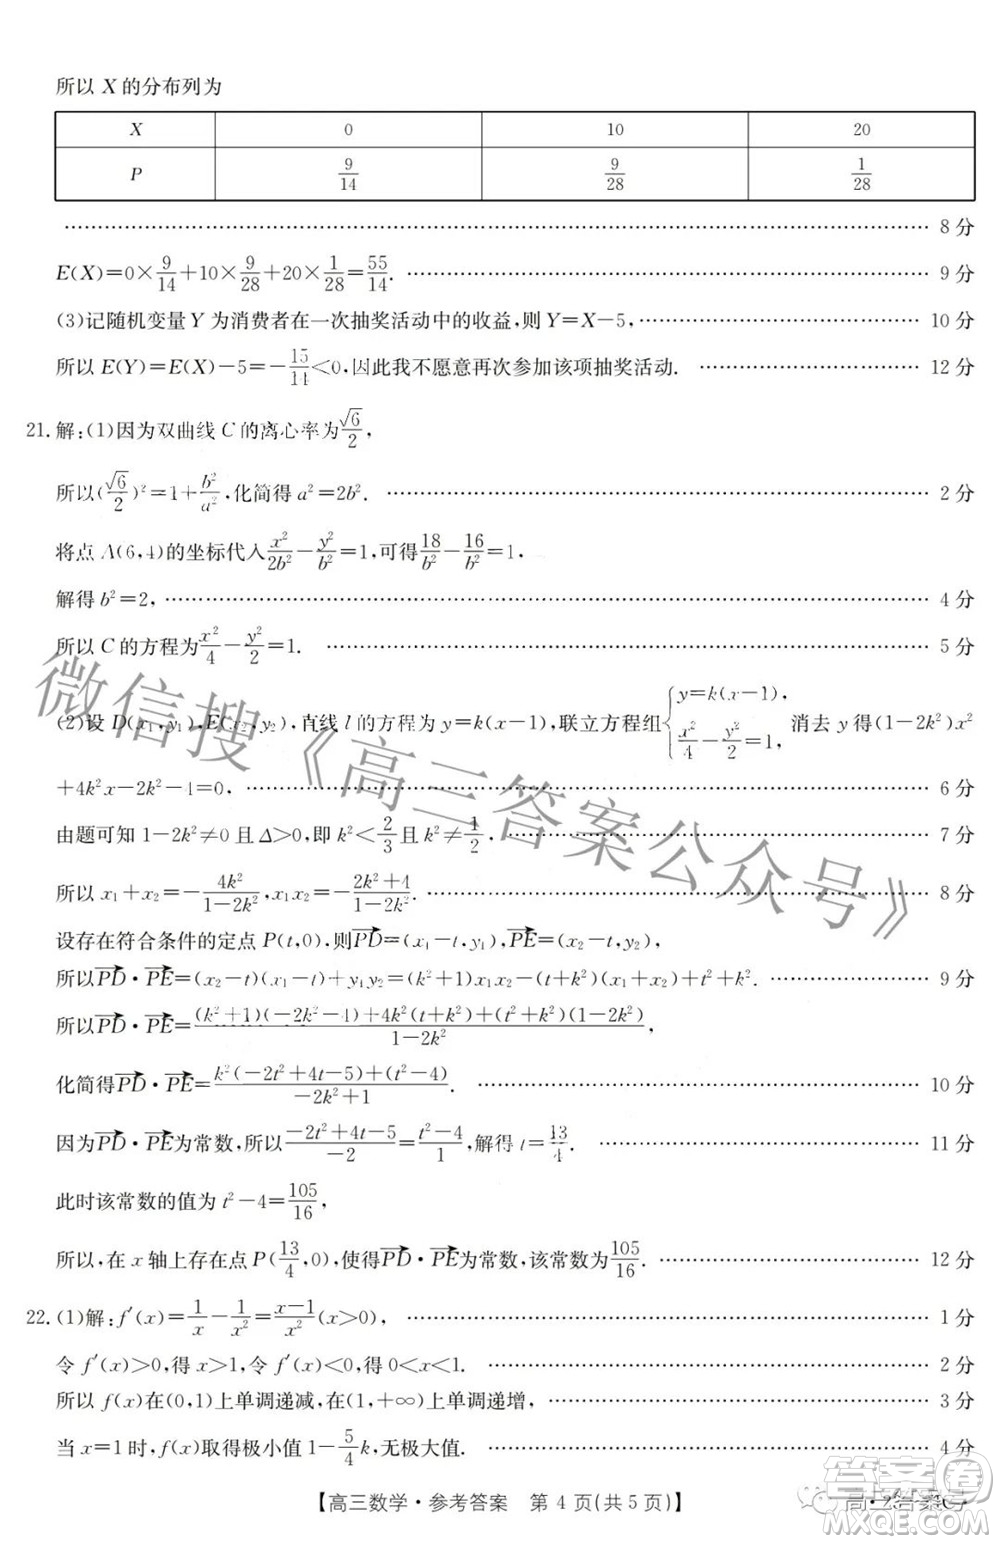 所以 X 的分布列为
X 0 10 20
P 9/14 9/28 1/28
…… 8 分
E(X)=0×9/14+10×9/28+20×1/28=55/14. …… 9 分
(3)记随机变量 Y 为消费者在一次抽奖活动中的收益,则 Y=X-5, …… 10 分
所以 E(Y)=E(X)-5=-15/14<0,因此我不愿意再次参加该项抽奖活动. …… 12 分
21.解:(1)因为双曲线 C 的离心率为√6/2,
所以(√6/2)²=1+b²/a²,化简得 a²=2b². …… 2 分
将点 A(6,4)的坐标代入x²/2b²-y²/b²=1,可得18/b²-16/b²=1,
解得 b²=2, …… 4 分
所以 C 的方程为x²/4-y²/2=1. …… 5 分
(2)设 D(x₁,y₁),E(x₂,y₂),直线 l 的方程为 y=k(x-1),联立方程组{y=k(x-1), x²/4-y²/2=1, 消去 y 得(1-2k²)x²
+4k²x-2k²-4=0, …… 6 分
由题可知 1-2k²≠0 且 Δ>0,即 k²<2/3且 k²≠1/2, …… 7 分
所以 x₁+x₂=-4k²/(1-2k²),x₁x₂=-(2k²+4)/(1-2k²). …… 8 分
设存在符合条件的定点 P(t,0),则PD→=(x₁-t,y₁),PE→=(x₂-t,y₂),
所以PD→·PE→=(x₂-t)(x₁-t)+y₁y₂=(k²+1)x₁x₂-(t+k²)(x₁+x₂)+t²+k². …… 9 分
所以PD→·PE→=((k²+1)(-2k²-4)+4k²(t+k²)+(t²+k²)(1-2k²))/(1-2k²),
化简得PD→·PE→=(k²(-2t²+4t-5)+(t²-4))/(-2k²+1). …… 10 分
因为PD→·PE→为常数,所以(-2t²+4t-5)/-2=(t²-4)/1,解得 t=13/4. …… 11 分
此时该常数的值为 t²-4=105/16,
所以,在 x 轴上存在点 P(13/4,0),使得PD→·PE→为常数,该常数为105/16. …… 12 分
22.(1)解:f′(x)=1/x-1/x²=(x-1)/x²(x>0), …… 1 分
令 f′(x)>0,得 x>1,令 f′(x)<0,得 0<x<1. …… 2 分
所以 f(x)在(0,1)上单调递减,在(1,+∞)上单调递增, …… 3 分
当 x=1 时,f(x)取得极小值 1-5/4k,无极大值. …… 4 分
【高三数学·参考答案 第 4 页(共 5 页)】
微信搜《高三答案公众号》
答案圈
MXQE.COM